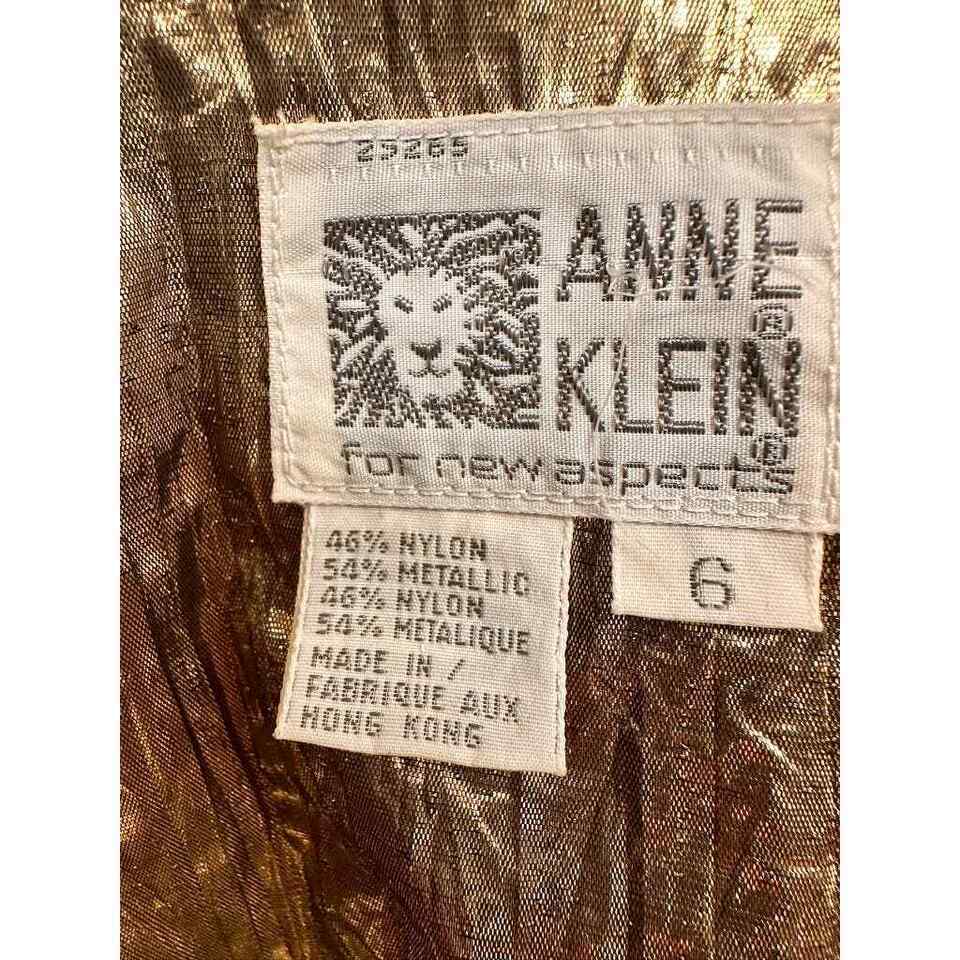 25265
ANNE
KLEIN®
for new aspects®
46% NYLON
54% METALLIC
46% NYLON
54% METALIQUE
MADE IN /
FABRIQUE AUX
HONG KONG
6